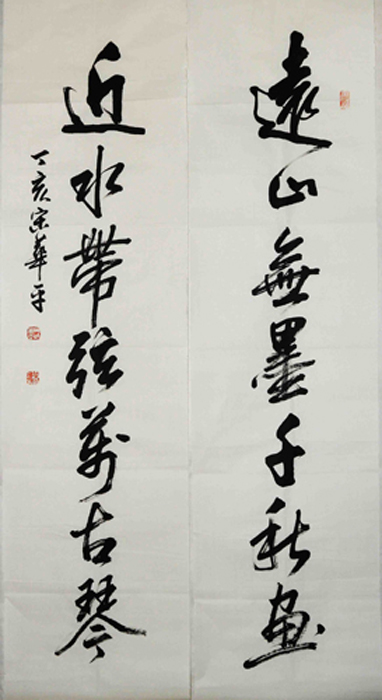 遠山無墨千秋畫
近水帶弦萬古琴
丁亥宋華平